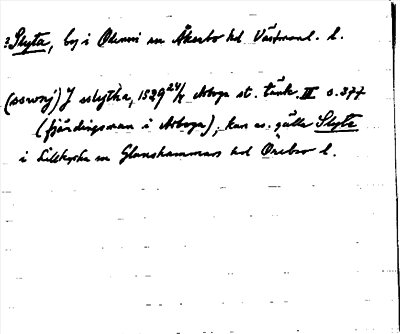 ? Slyta, by i Odensvi sn Åkerbo hd Västmanl. l.
(sownj) J slytha, 1529 24/5 Arboga st. tänk. III s. 377
(fjärdingsman i Arboga), kan ev. gälla Slyta
i Lillkyrka sn Glanshammars hd Örebro l.